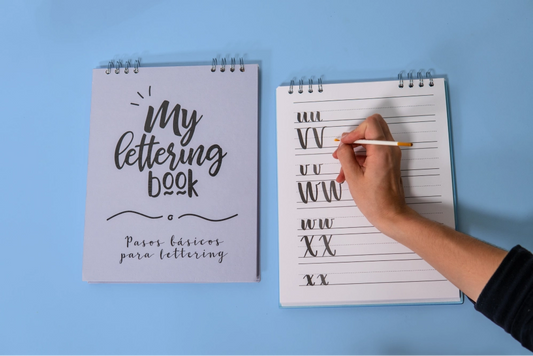 My
lettering
book
Pasos básicos
para lettering
uu
VV
u u
WW
w w
XX
x x